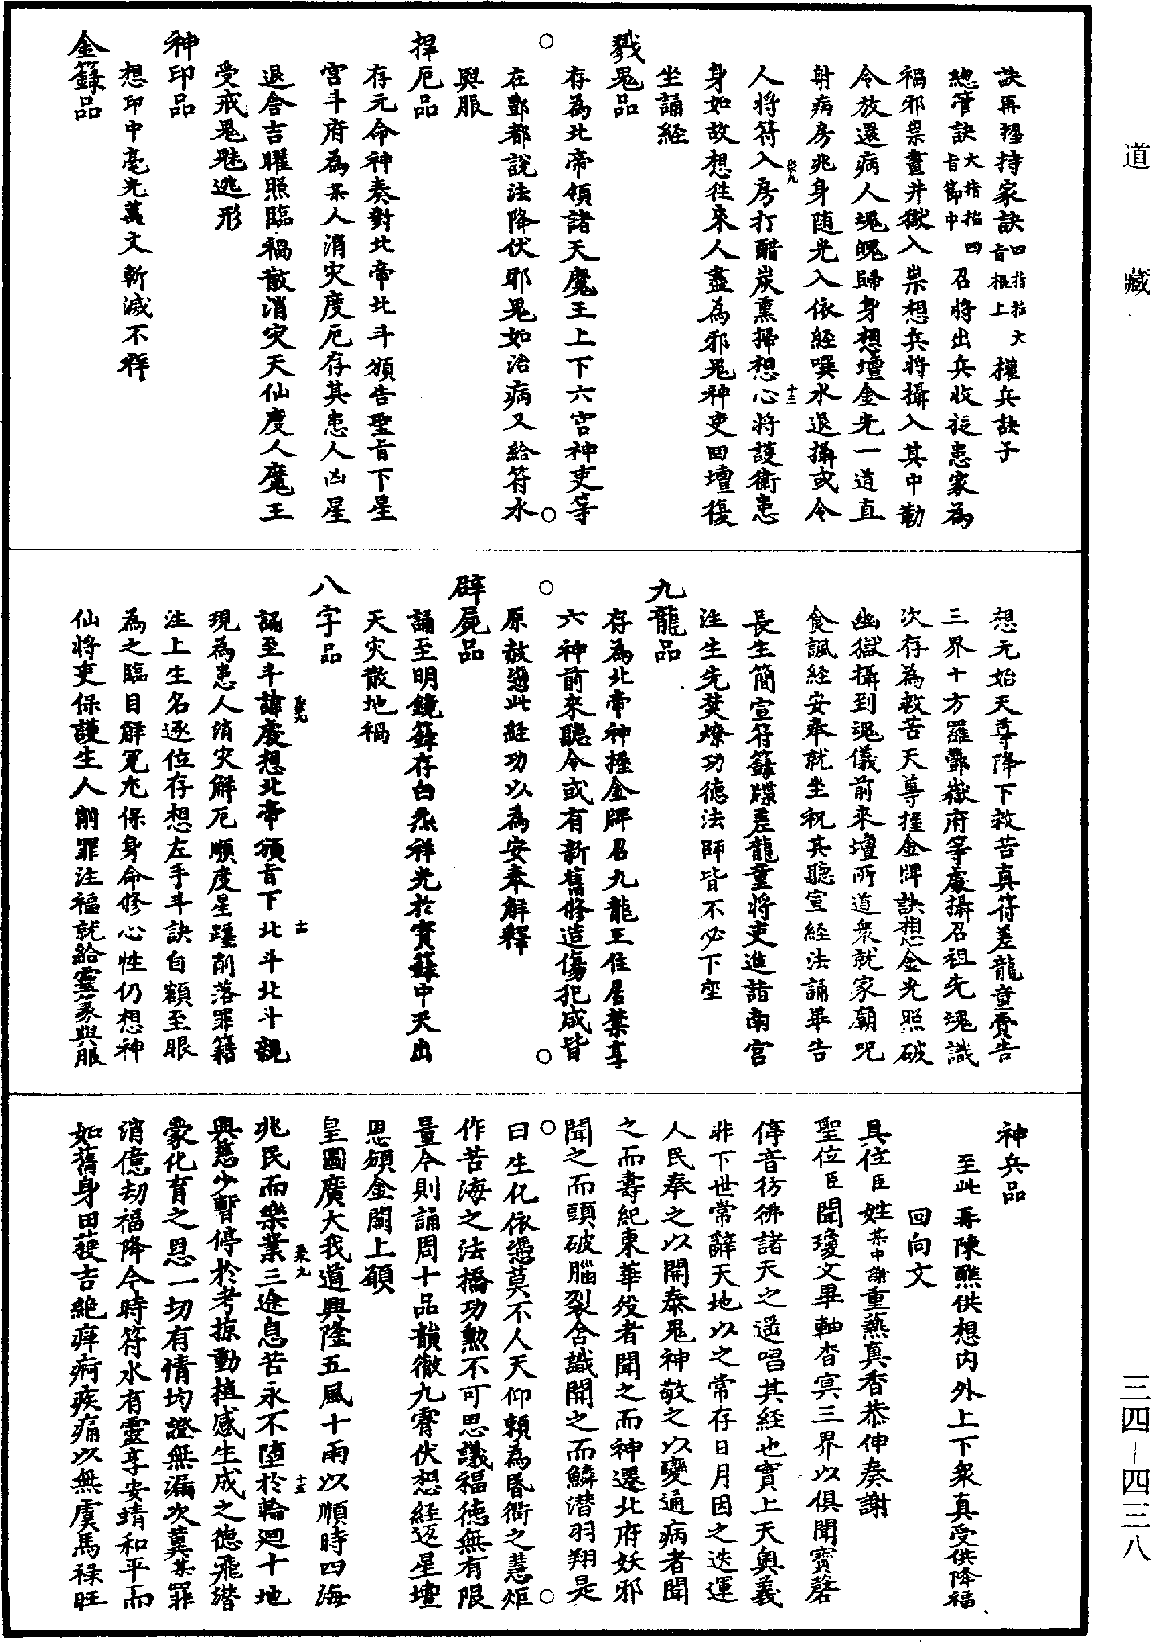 道藏
三四—四三八
訣再捏持家訣四指指大指根上權兵訣子
總管訣大指掐四指節中召將出兵收捉患家為
禍邪祟畫井獄入祟想兵將攝入其中勒
令放還病人魂魄歸身想壇金光一道直
射病房兆身隨光入依經噀水退攝或令
人將符入房打醋炭熏掃想心將護衛患
身如故想往來人盡為邪鬼神吏回壇復
坐誦經
戮鬼品
存為北帝領諸天魔王上下六宮神吏等
在酆都說法降伏邪鬼如治病又給符水
與服
捍厄品
存元命神奏對北帝北斗頒告聖旨下星
宮斗府為某人消災度厄存其患人凶星
退舍吉曜照臨禍散消災天仙度人魔王
受戒鬼魅逃形
神印品
想印中毫光萬丈斬滅不祥
金籙品
想元始天尊降下救苦真符差龍童賫告
三界十方羅酆嶽府等處攝召祖先魂識
次存為救苦天尊捏金牌訣想金光照破
幽獄攝到魂儀前來壇所道衆就家廟咒
食諷經安奉就坐祝其聽宣經法誦畢告
長生簡宣符籙牒差龍童將吏進詣南宮
注生先焚燎功德法師皆不必下座
九龍品
存為北帝神捏金牌召九龍王住居葉享
六神前來聽令或有新舊修造傷犯咸皆
原赦過此經功以為安奉解釋
辟屍品
誦至明鏡籙存白炁祥光於寶籙中天出
天災散地禍
八字品
誦至斗諱處想北帝頒旨下北斗北斗親
現為患人消災解厄順度星躔削落罪籍
注上生名逐位存想左手斗訣自額至眼
為之臨目解冤尤保身命修心性仍想神
仙將吏保護生人削罪注福就給靈篆與服
神兵品
至此再陳醮供想內外上下衆真受供降福
回向文
具位臣姓某中謝重爇真香恭伸奏謝
聖位臣聞瓊文畢軸杳冥三界以俱聞寶磬
停音彷彿諸天之遙唱其經也實上天奧義
非下世常辭天地以之常存日月因之迭運
人民奉之以開泰鬼神敬之以變通病者聞
之而壽紀東華役者聞之而神遷北府妖邪
聞之而頭破腦裂含識聞之而鱗潛羽翔是
曰生化依憑莫不人天仰賴為昏衢之慧炬
作苦海之法橋功勲不可思議福德無有限
量今則誦周十品韻徹九霄伏想經返星壇
恩頒金闕上願
皇圖廣大我道興隆五風十雨以順時四海
兆民而樂業三途息苦永不墮於輪迴十地
興慈少暫停於考掠動植感生成之德飛潛
蒙化育之恩一切有情均證無漏次冀某罪
消億劫福降今時符水有靈享安靖和平而
如舊身田發吉絶痒疴疾痛以無虞馬祿旺